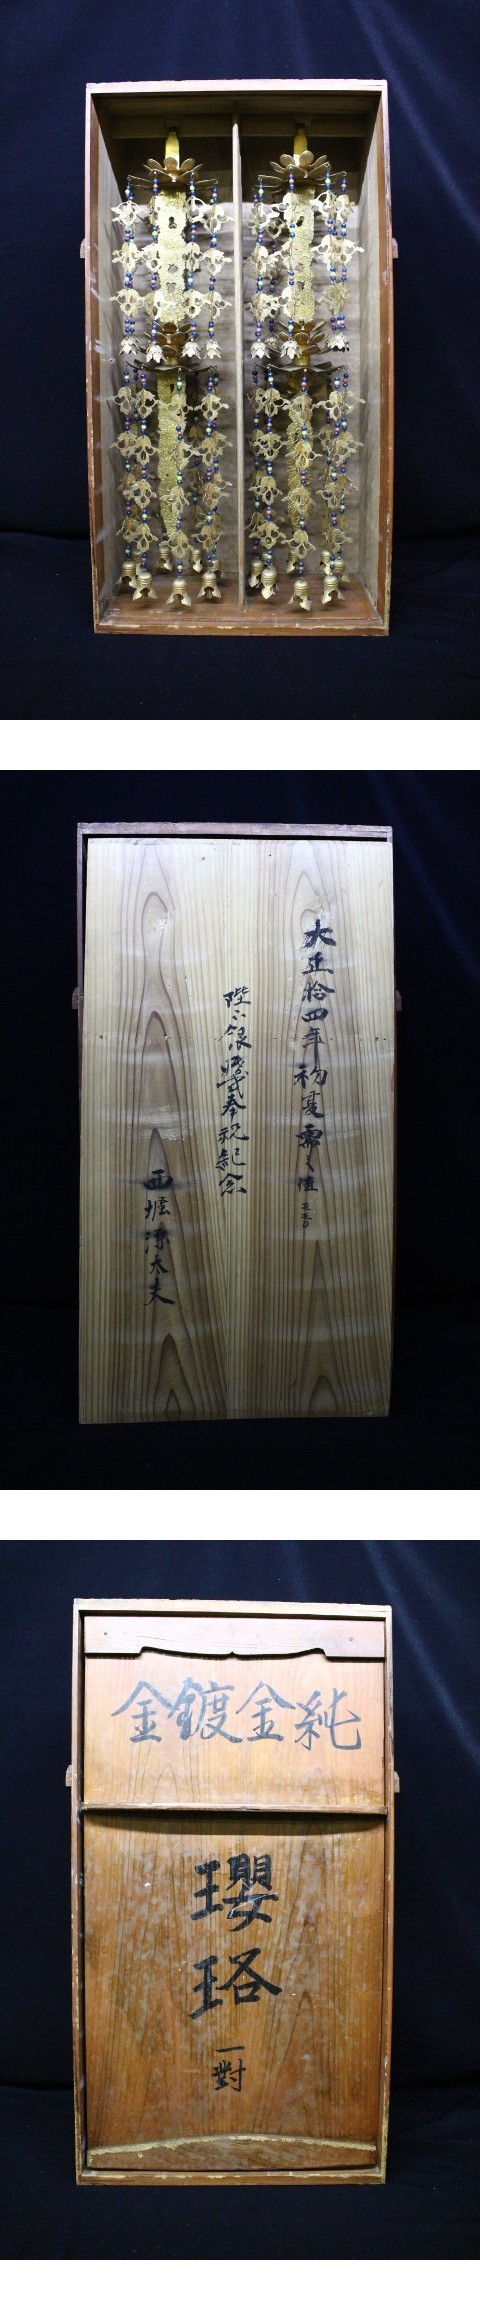 大正拾四年初夏需之値
陛下銀婚式奉祝記念
西堀源太夫
純金鍍金
瓔珞
一對